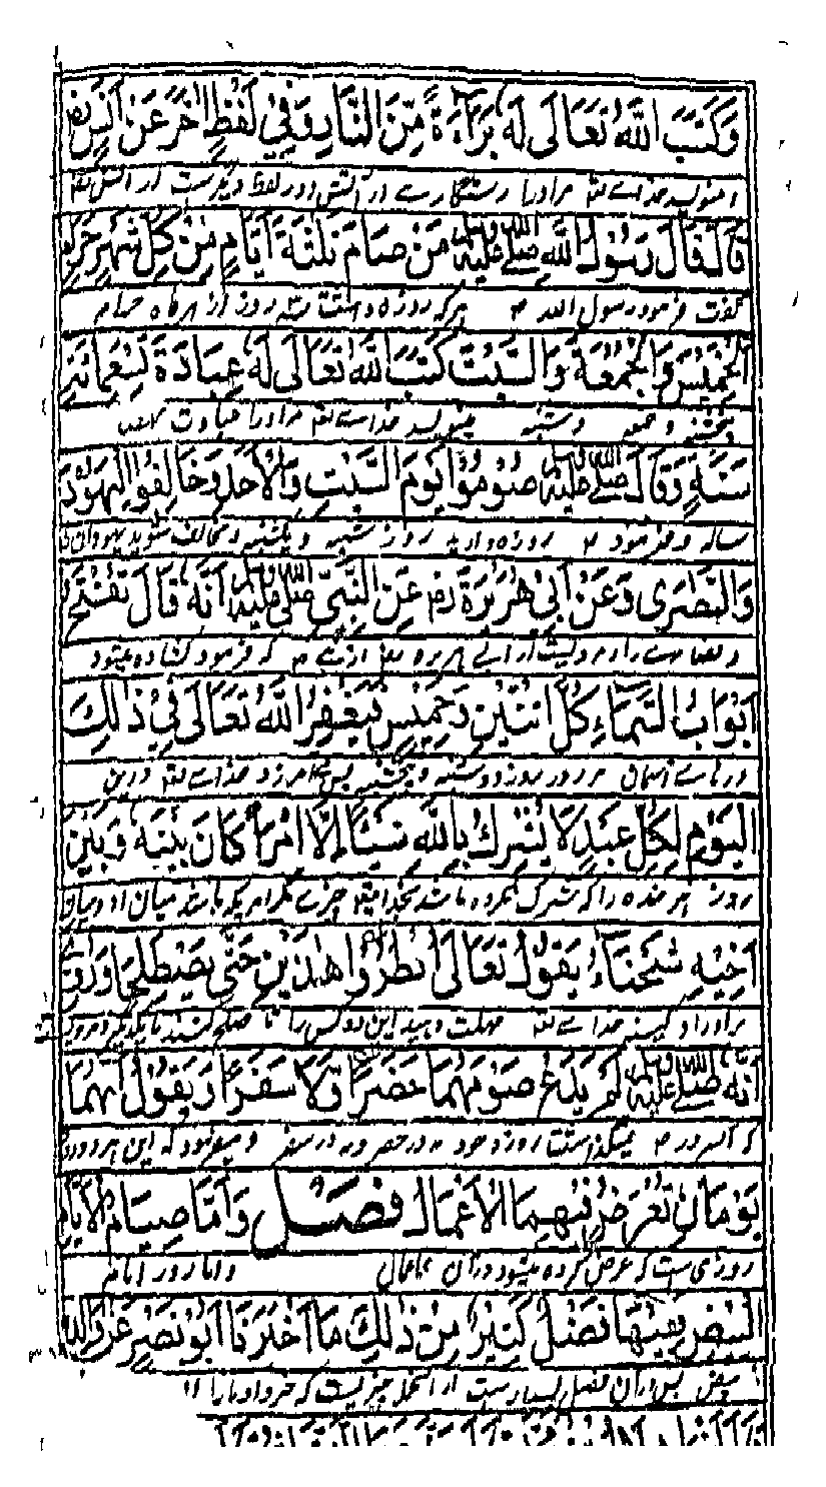 وَكَتَبَ اللّٰهُ تَعَالٰى لَهٗ بَرَاءَةً مِّنَ النَّارِ وَفِيْ لَفْظٍ اٰخَرَ عَنْ اَنَسٍ رض
او نیز رستگاری از آتش و در لفظ دیگرست از انس رض
قَالَ قَالَ رَسُوْلُ اللّٰهِ صلى الله عليه وسلم مَنْ صَامَ ثَلٰثَةَ اَيَّامٍ مِّنْ كُلِّ شَهْرٍ حَرَامٍ
گفت فرمود رسول الله ؐ هر که روزه داشت سه روز از هر ماه حرام
الْخَمِيْسَ وَالْجُمُعَةَ وَالسَّبْتَ كَتَبَ اللّٰهُ تَعَالٰى لَهٗ عِبَادَةَ تِسْعِمِائَةِ
پنجشنبه و جمعه و شنبه مینویسد خدای تعالی مر او را عبادت
سَنَةٍ وَقَالَ صلى الله عليه وسلم صُوْمُوْا يَوْمَ السَّبْتِ وَالْاَحَدِ وَخَالِفُوا الْيَهُوْدَ
ساله و فرمود ؐ روزه دارید روز شنبه و یکشنبه و مخالف شوید یهودان را
وَالنَّصٰرٰى وَعَنْ اَبِيْ هُرَيْرَةَ رض عَنِ النَّبِيِّ صلى الله عليه وسلم اَنَّهٗ قَالَ تُفْتَحُ
و نصاری را و مرویست از ابی هریره رض از نبی ؐ که فرمود کشاده میشود
اَبْوَابُ السَّمَاءِ كُلَّ اثْنَيْنِ وَخَمِيْسٍ فَيَغْفِرُ اللّٰهُ تَعَالٰى فِيْ ذٰلِكَ
درهای آسمان هر روز دوشنبه و پنجشنبه پس می آمرزد خدای تعالی درین
الْيَوْمِ لِكُلِّ عَبْدٍ لَا يُشْرِكُ بِاللّٰهِ شَيْئًا اِلَّا امْرَأً كَانَ بَيْنَهٗ وَبَيْنَ
روز هر بنده را که شرک نکرده باشد بخدا چیزی مگر مردیکه باشد میان او و میان
اَخِيْهِ شَحْنَاءُ يَقُوْلُ تَعَالٰى اَنْظِرُوْا هٰذَيْنِ حَتّٰى يَصْطَلِحَا وَرُوِيَ
برادر او کینه خدای تعالی مهلت دهید این دو کس را تا صلح کنند با یکدیگر و مرویست
اَنَّهٗ صلى الله عليه وسلم لَمْ يَدَعْ صَوْمَهُمَا حَضَرًا وَّلَا سَفَرًا وَيَقُوْلُ اِنَّهُمَا
که آنسرور ؐ نمیگذاشت روزه خود نه در حضر و نه در سفر و میفرمود که این هر دو روز
يَوْمَانِ تُعْرَضُ فِيْهِمَا الْاَعْمَالُ فصل وَاَمَّا صِيَامُ الْاَيَّامِ
روزی ست که عرض کرده میشود در آن اعمال و اما روزه ایام
الْبِيْضِ فَفِيْهَا فَضْلٌ كَثِيْرٌ مِّنْ ذٰلِكَ مَا اَخْبَرَنَا اَبُوْ نَصْرٍ عَنْ وَالِدِهٖ
بیض پس در آن فضل بسیارست از انجمله چیزیست که خبر داد ما را